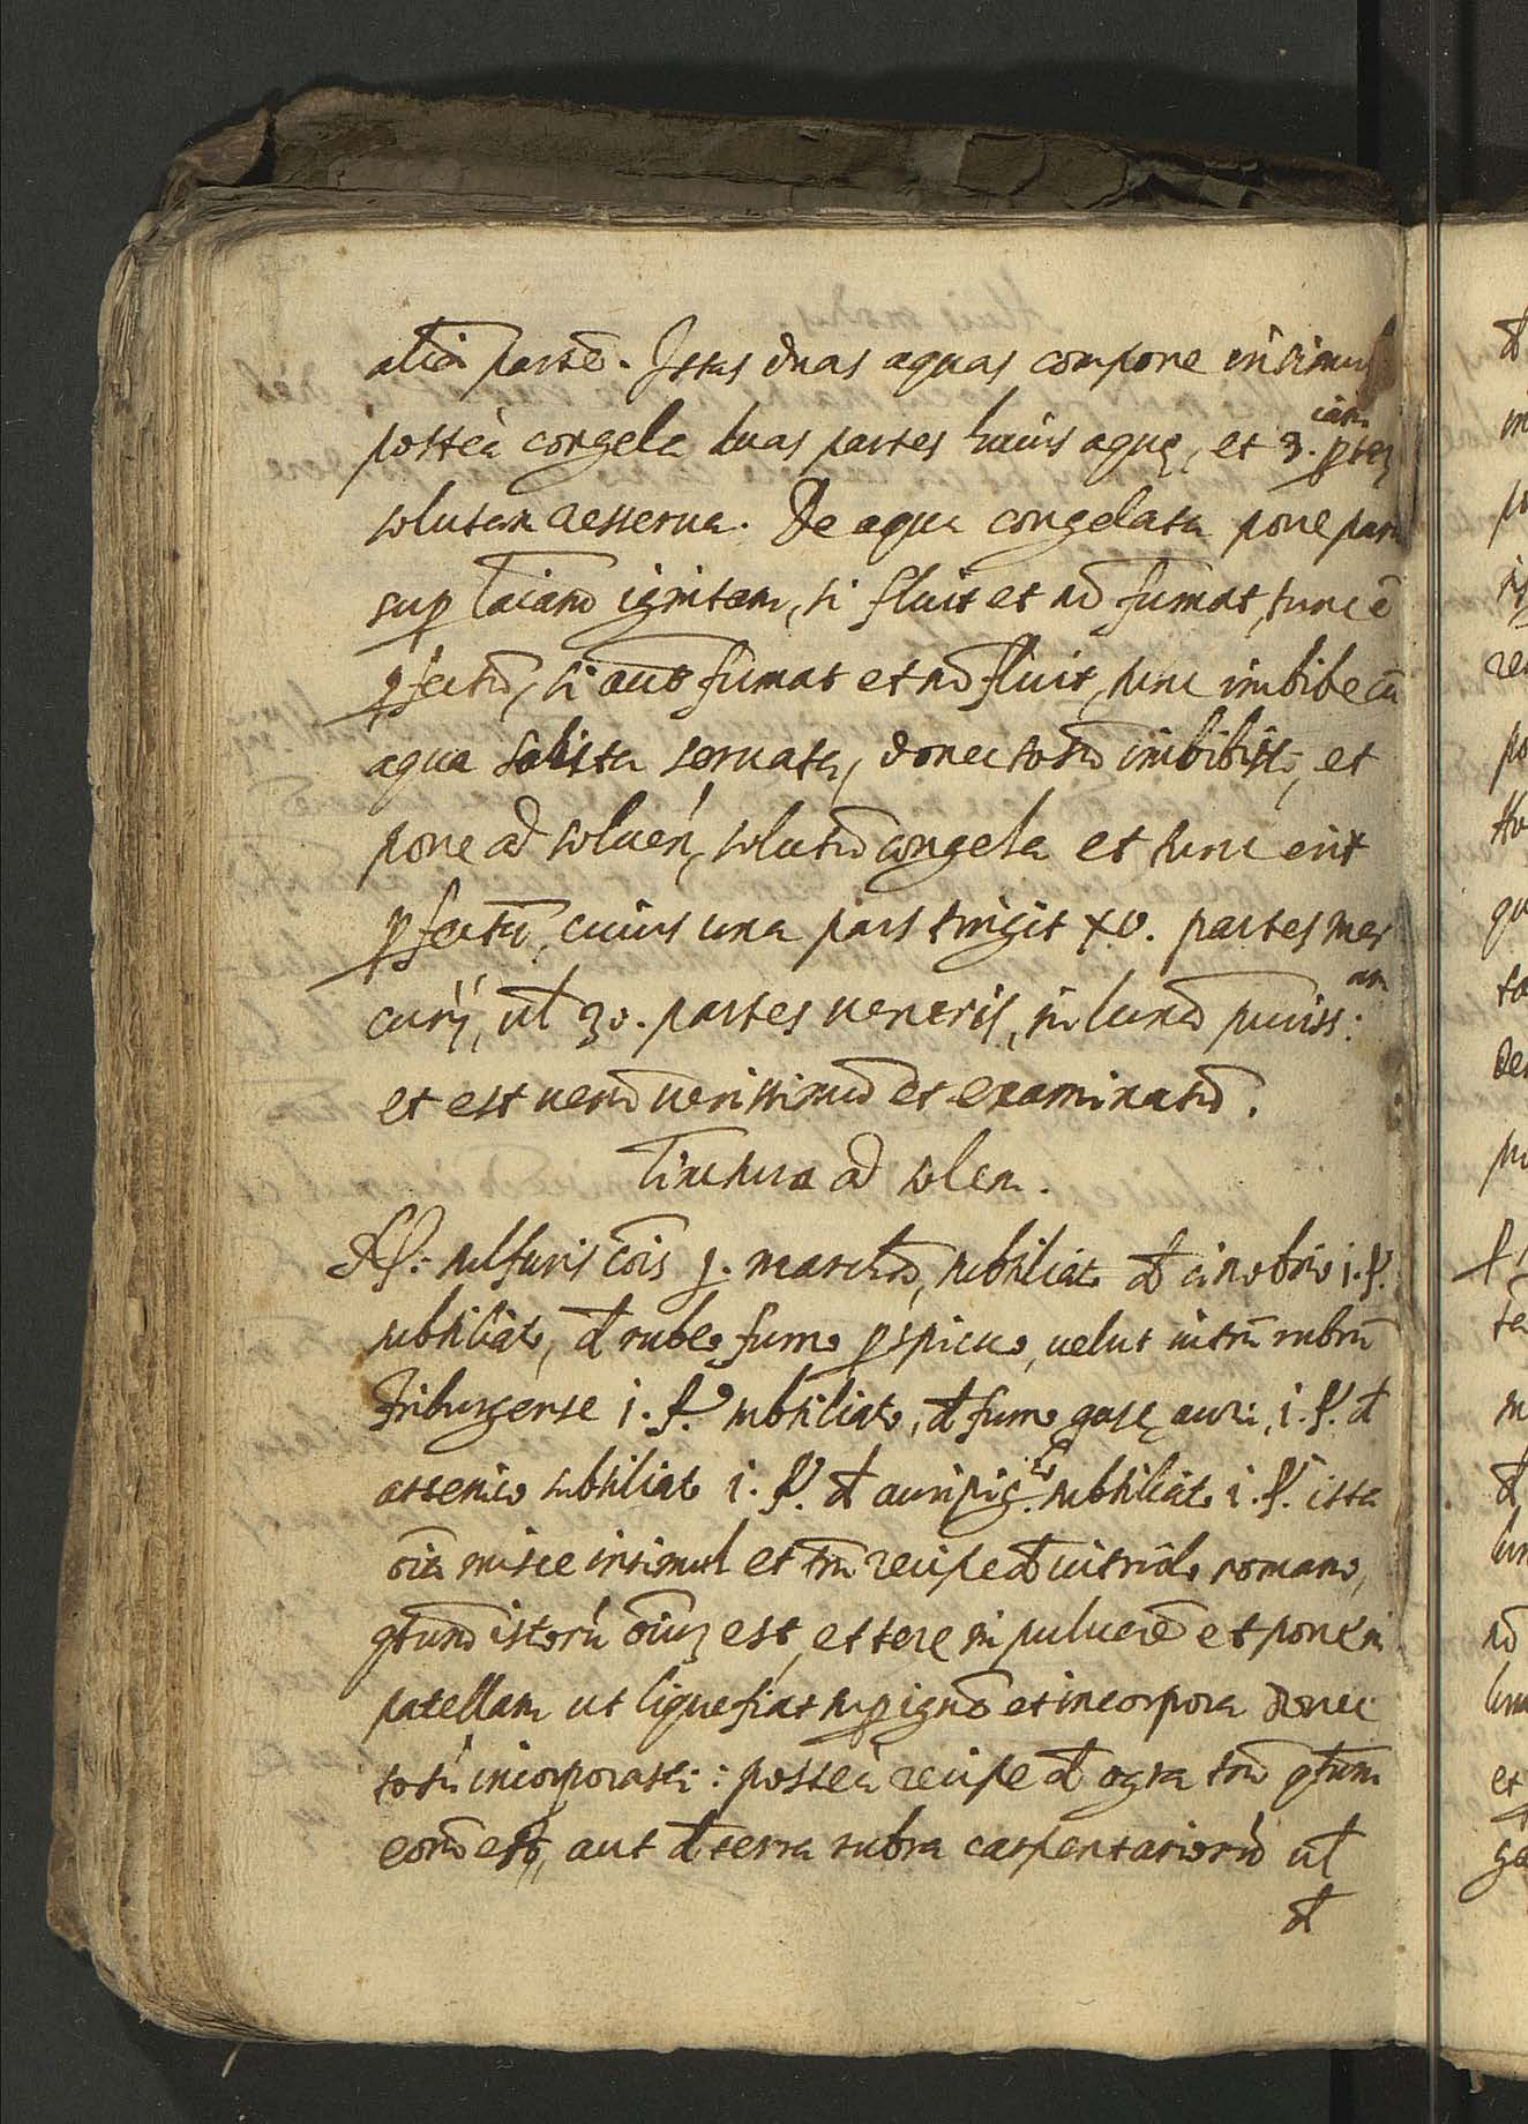 aliā partē. Istas duas aquas compone insimul
posteà congela duas partes huius aquę, et 3. iam ptē
solutam asserua. De aqua congelata pone par
sup laīam ignitam, si fluit et nō fumat, tunc ē
pfectū, si aūt fumat et nō fluit, tunc imbibe cū
aqua seruata, donec totū imbibist, et
pone ad soluen, solutū congela et tunc erit
pfectū, cuius una pars tingit xv. partes mer
curij, ul 30. partes ueneris, in lunā puriss: am
et est uerū uerissimū et examinatū.
Tinctura ad solem.
sulfuris cōis j. subtiliat, d cinobrio i. f.
subtiliat, d rubeo fumo pspicuo, uelut uitrū rubrū
friburgense i. f. subtiliato, d fumo auri, i. f. d
arsenico subtiliato i. f. d auripig. to subtiliato i. f. ista
oīa misce insimul et tm̄ recipe d uitriolo romano,
qtum istorū oīuʒ est, et tere in puluerē et pone in
patellam ut liquefiat sup ignē et incorpora donec
totū incorporasti: posteà recipe d ogra tm̄ qtum
eorū est, aut d terra rubra carpentariorū ul
d